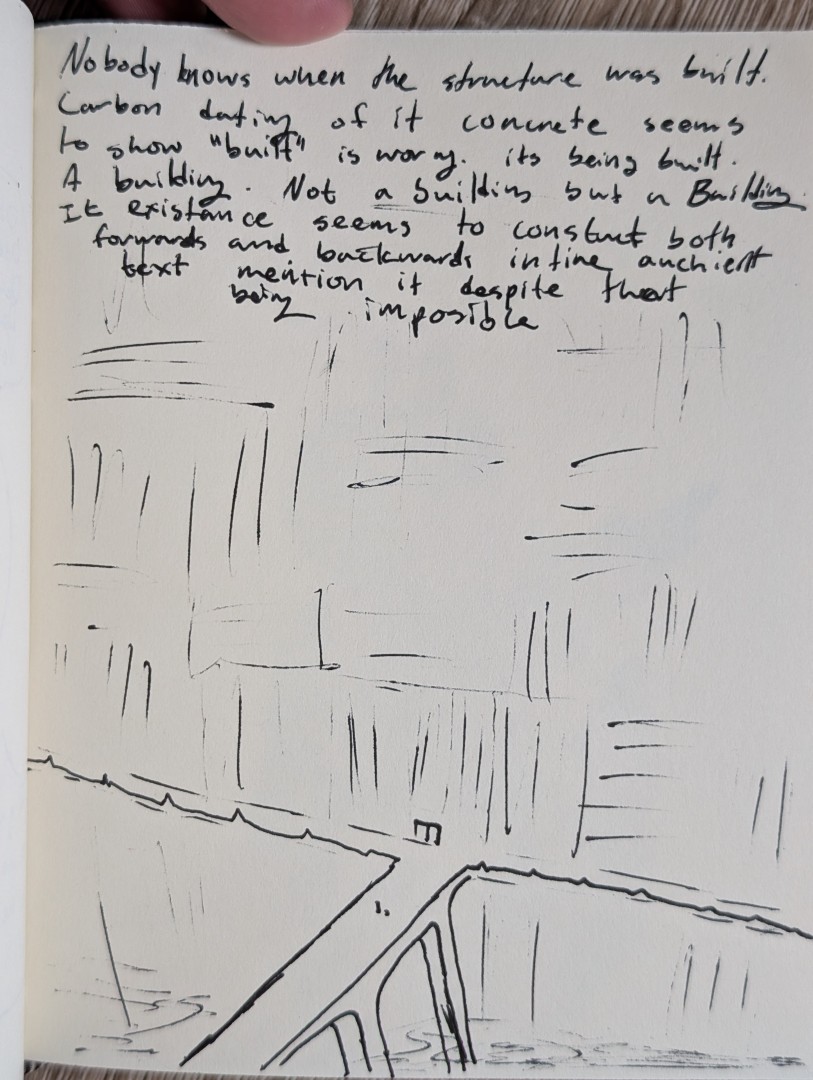 Nobody knows when the structure was built.
Carbon dating of it concrete seems
to show "built" is worng. its being built.
A building. Not a building but a Building.
It existance seems to constuct both
forwards and backwards in time anchient
text mention it despite theat
being imposible